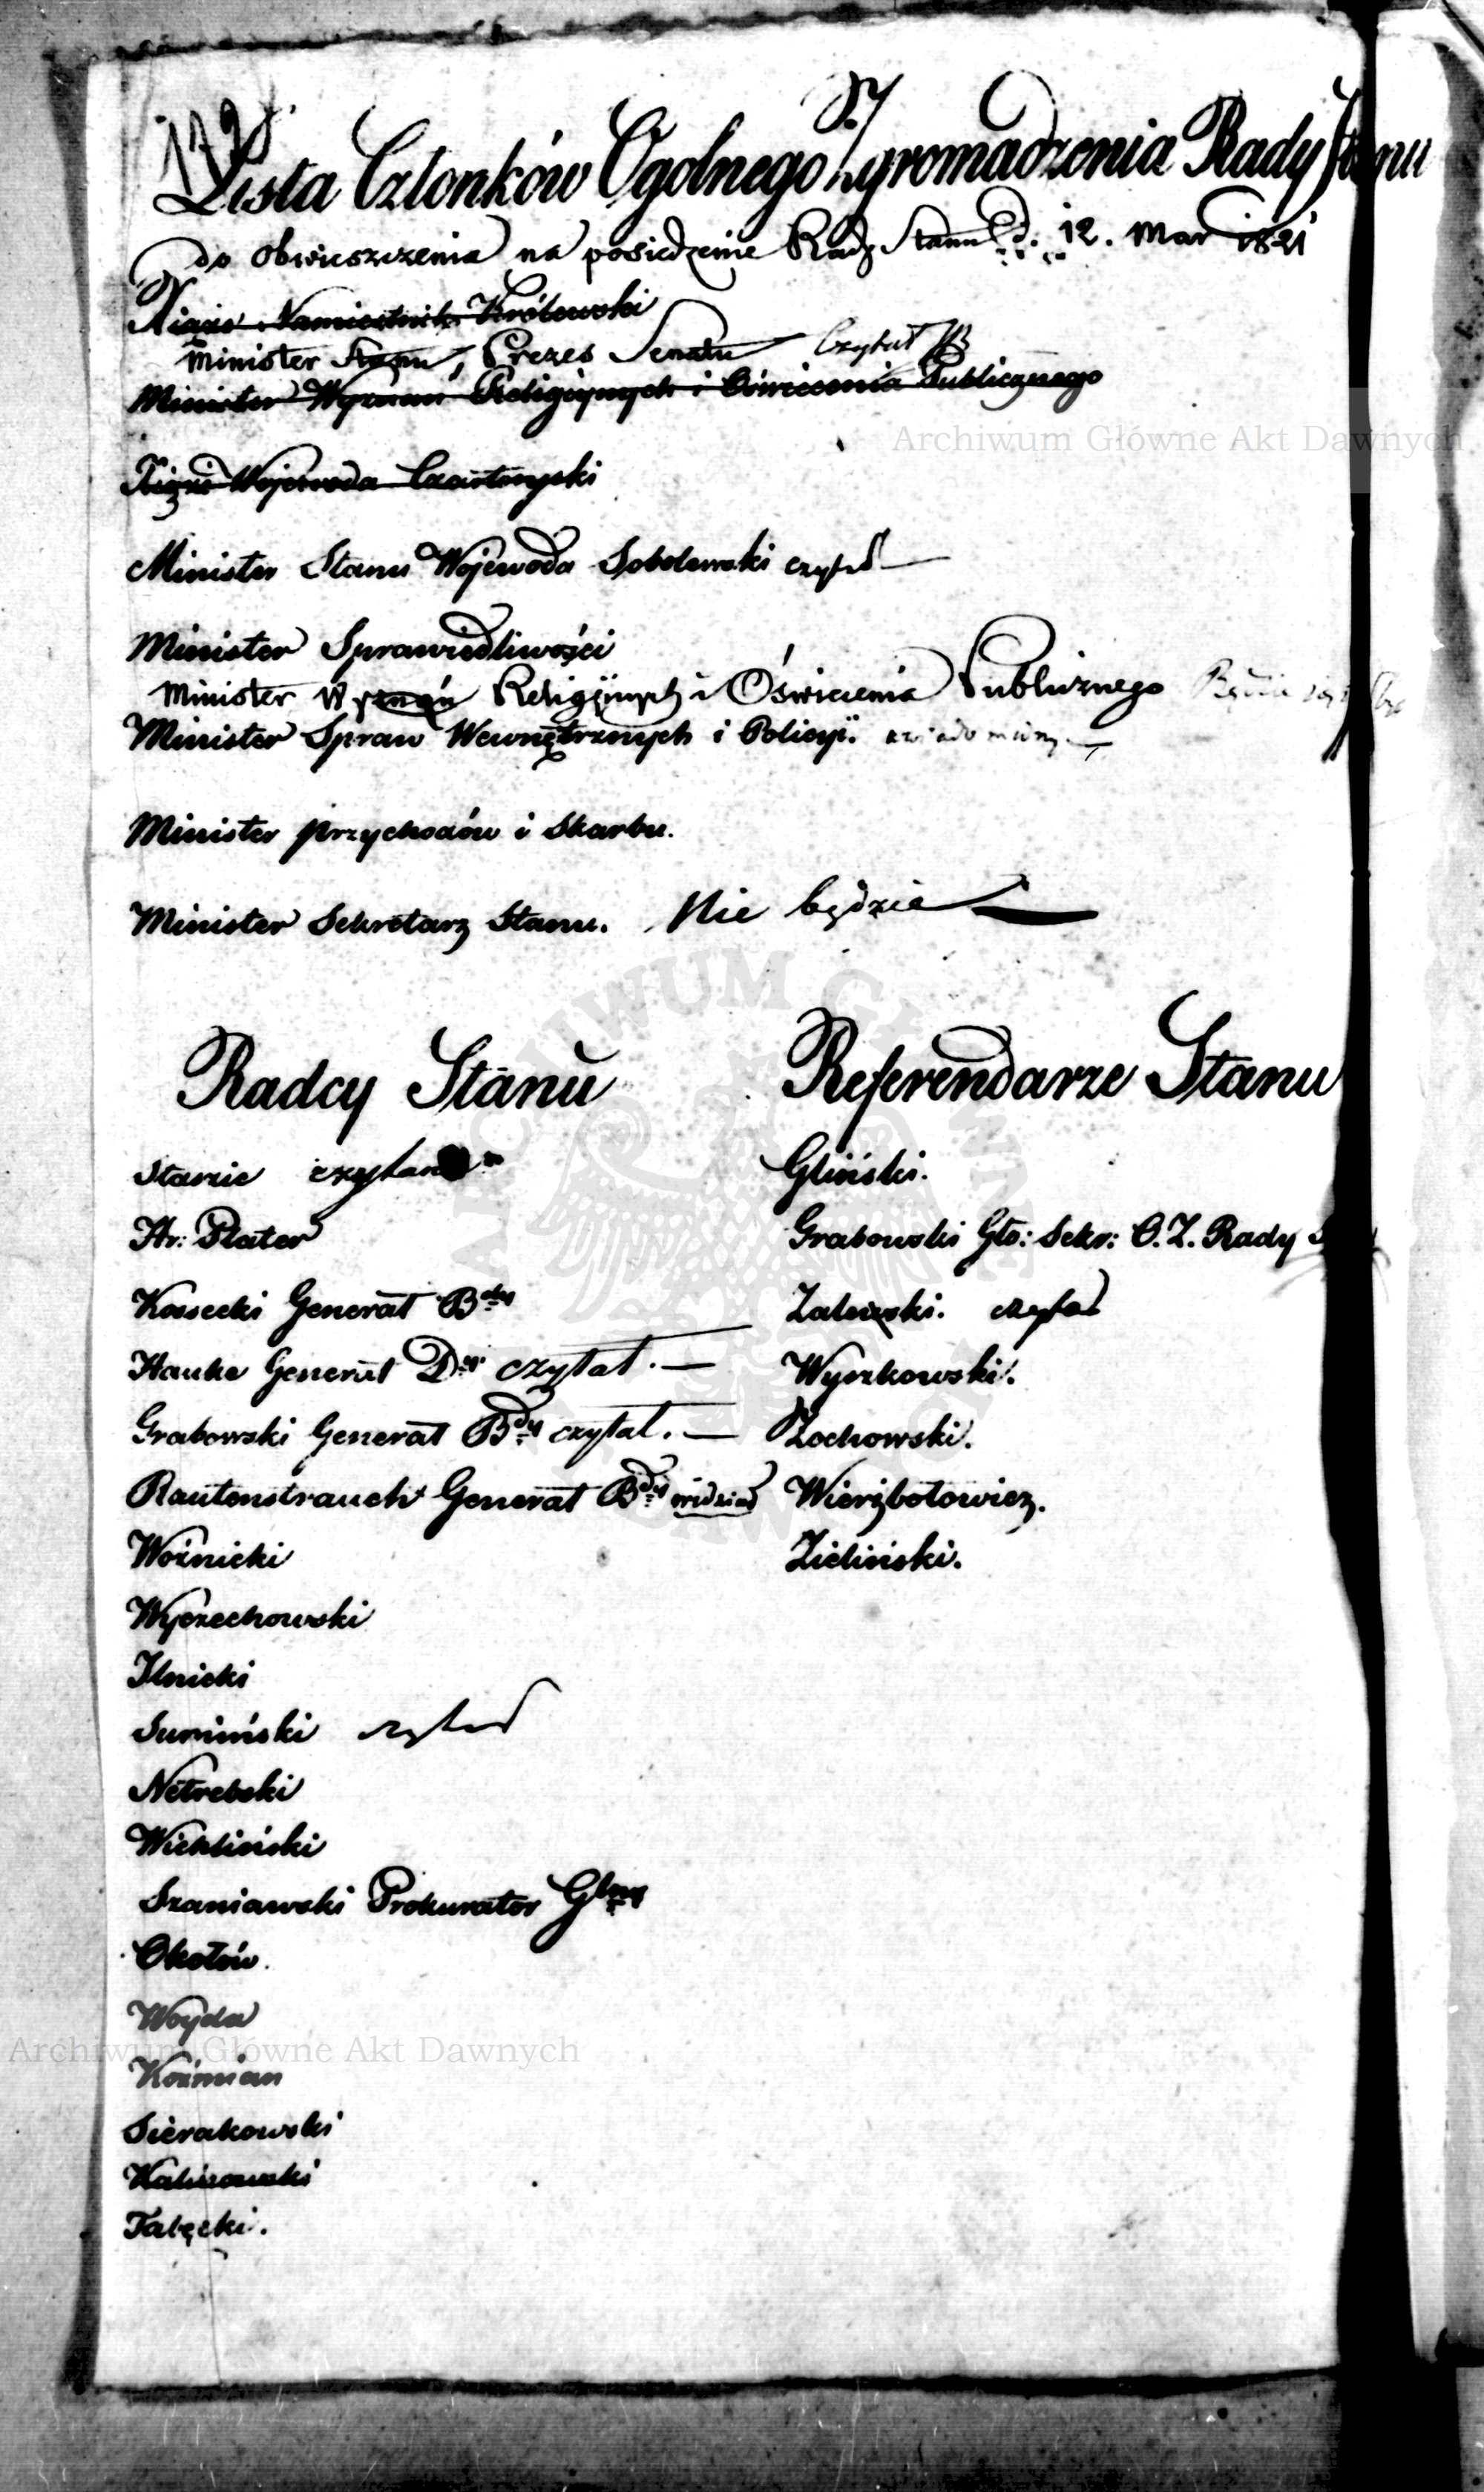 Lista Członków Ogolnego Zgromadzenia Rady Stanu
do obwieszczenia na posiedzenie Rady Stanu d. 12. Mar 1821
Xiąże Namiestnik Królewski
Minister Stanu, Prezes Senatu Czytał
Minister Wyznań Religiynych i Oświecenia Publicznego
Xiąże Wojewoda Czartoryski
Minister Stanu Wojewoda Sobolewski czytał
Minister Sprawiedliwości
Minister Wyznań Religijnych i Oświecenia Publicznego
Minister Spraw Wewnętrznych i Policyi. uwiadomiony
Minister Przychodów i Skarbu.
Minister Sekretarz Stanu. Nie będzie
Radcy Stanu
Staszic czytano
Hr: Plater
Kossecki Generał Bdy
Hauke Generał Dyi czytał.
Grabowski Generał Bdy czytał.
Rautenstrauch Generał Bdy widział
Woźnicki
Wyczechowski
Ilnicki
Sumiński czytał
Netrebski
Wichliński
Szaniawski Prokurator Glny
Okołów.
Woyda
Koźmian
Sierakowski
Kaliszewski
Tałęcki.
Referendarze Stanu
Gliński.
Grabowski Gło: Sekr: O. Z. Rady
Zaluski. czytał
Wyszkowski.
Żochowski.
Wierzbołowicz.
Zieliński.
Archiwum Główne Akt Dawnych
Archiwum Główne Akt Dawnych